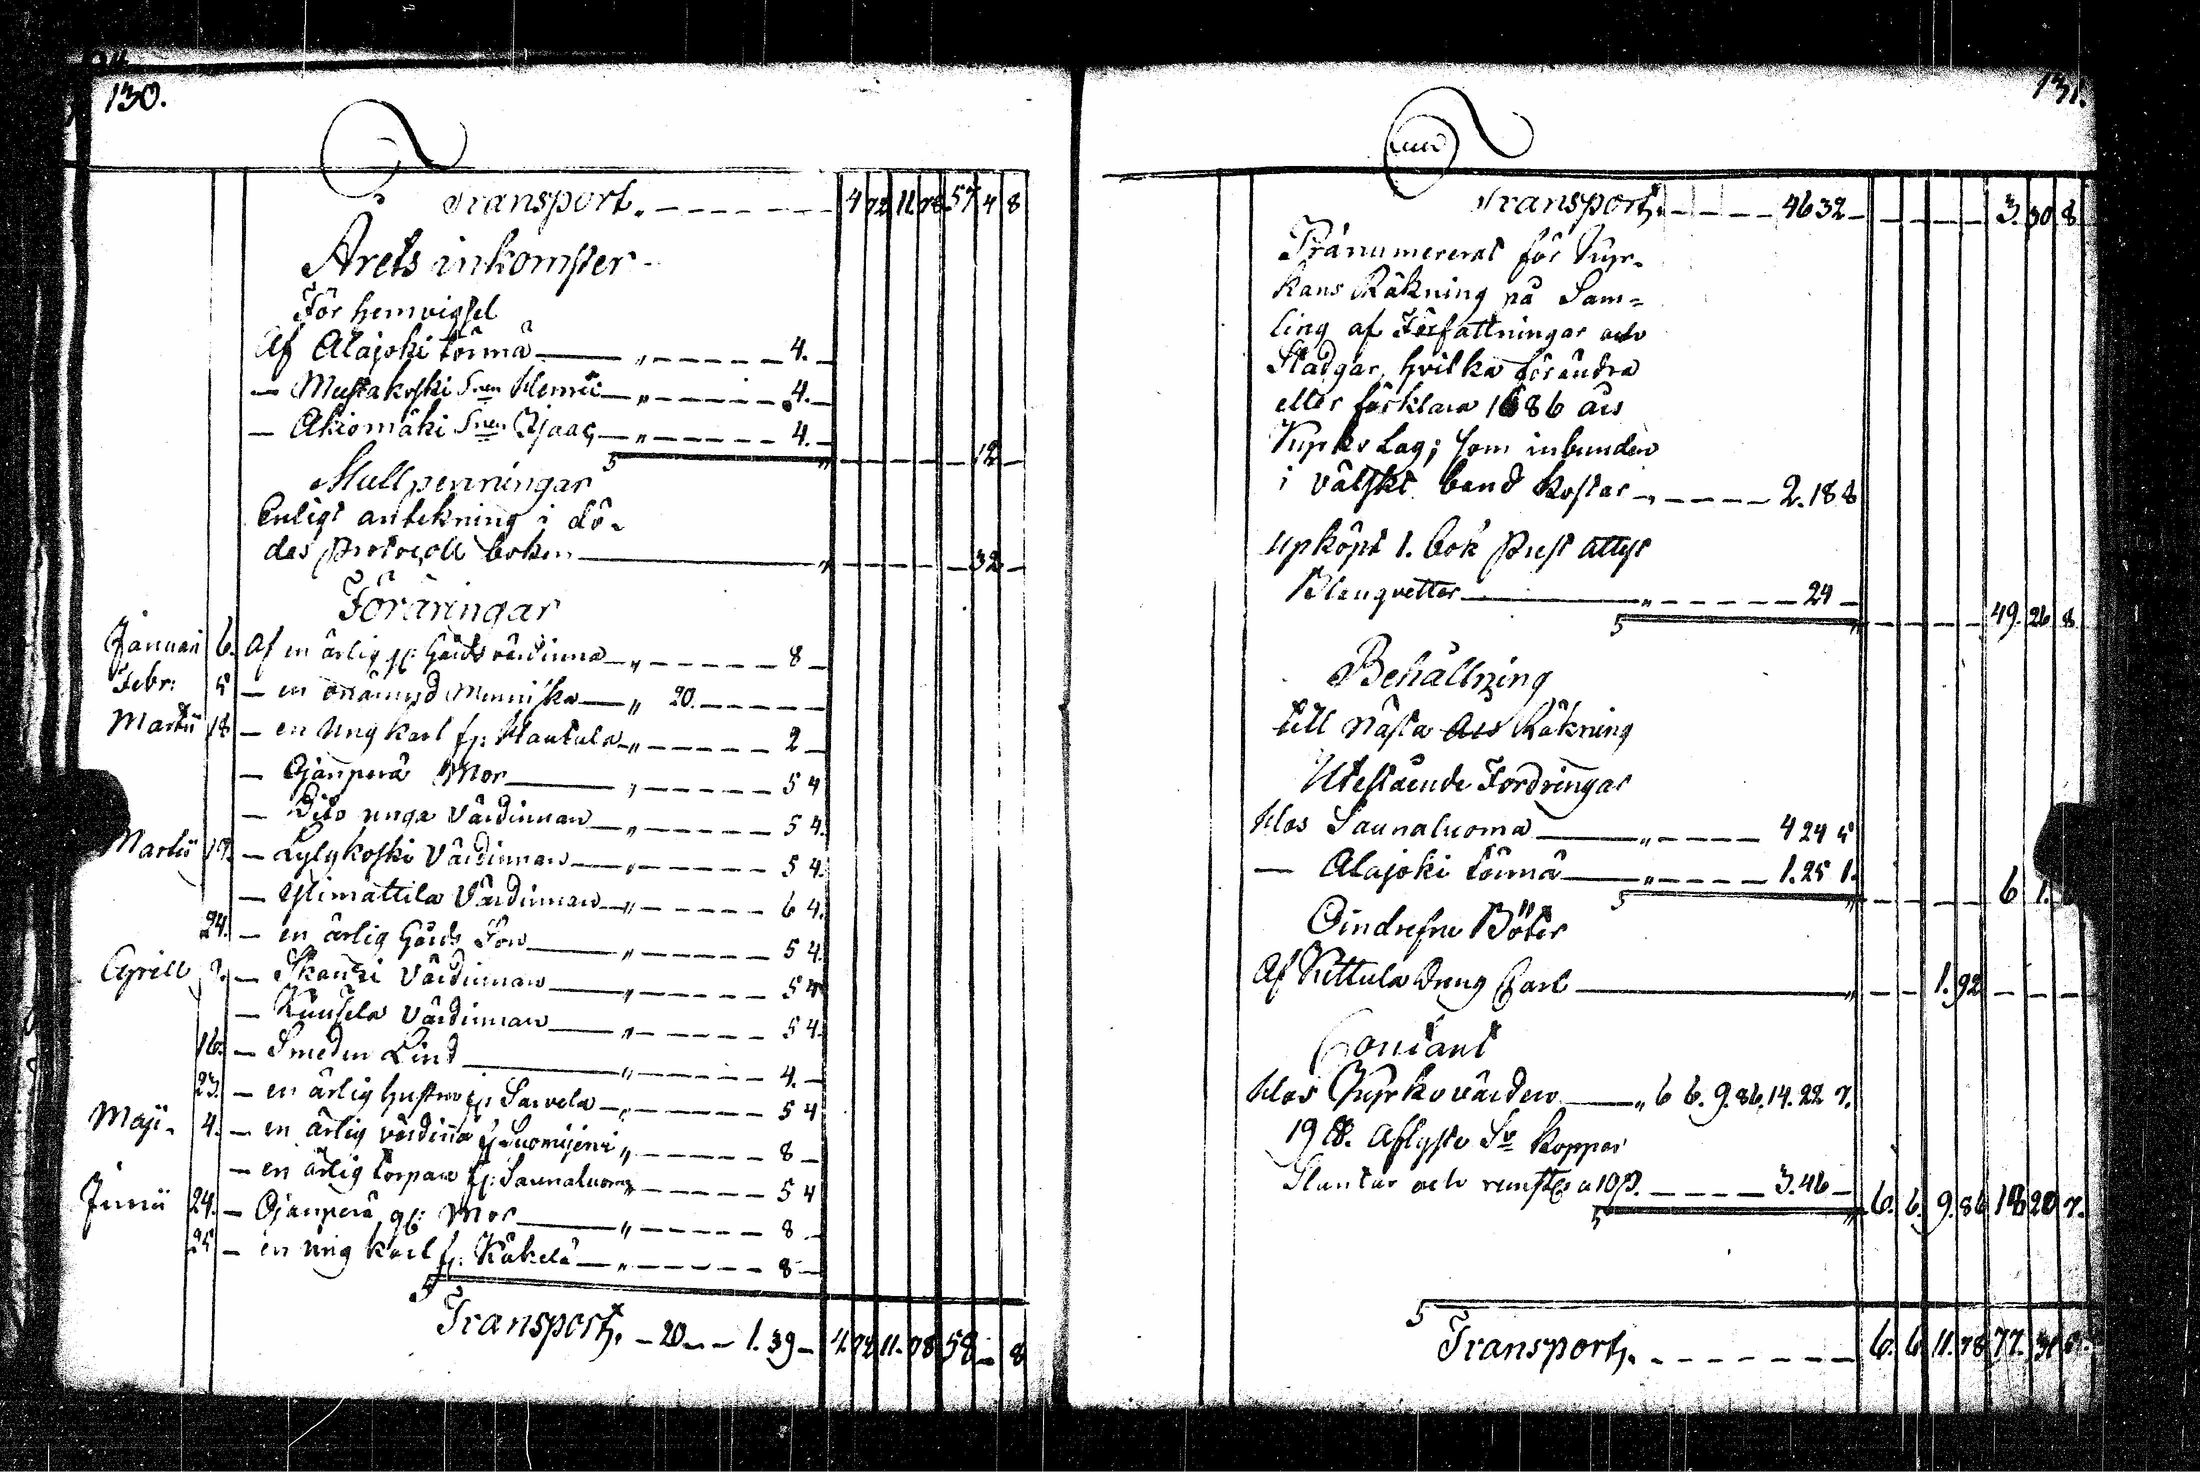 130.
Transport. 4 72 11 78 57 4 8
Årets inkomster
För hemvigsel
Af Alajoki Törmä „ 4.
— Mustakoski Sven Henric „ 4.
— Akiomäki Sven Isaac „ 4.
12
Mullpenningar
Enligt antekning i dö-
das Protocoll boken „ 32
Föräringar
Januari 6. Af en ärlig gl: Gårds värdinna „ 8
Febr: 5 — en onämnd Menniska „ 20.
Martii 18 — en Ung karl fr: Hautala „ 2
— Ojanperä Mor „ 5 4
— Dito unga Värdinnan „ 5 4.
Martii 19. — Lylykoski Värdinnan „ 5 4.
— Ylimattila Värdinnan „ 6 4.
24. — en ärlig Gårds Son „ 5 4.
Aprill — Skantzi Värdinnan „ 5 4
— Kuusela Värdinnan „ 5 4.
16. — Smeden Lind „ 4.
23. — en ärlig hustru fr: Sarvela „ 5 4
Maji. 4. — en ärlig värdinna fr: Luomijeni „ 8
— en ärlig torpare fr: Saunaluoma „ 5 4
Junii 24. — Ojanperä gl: Mor „ 8
25 — en ung karl fr: Käkelä „ 8
Transport. 20 1. 39 4. 72 11. 78 58 8
131.
Transport. 4632 3. 30 8
Pränumererat för Kyr-
kans Räkning på Sam-
ling af Författningar och
Stadgar, hvilka förändra
eller förklara 1686 års
Kyrko Lag; som inbunden
i välskt band kostar „ 2. 18 8
Upköpt 1. bok Prest attest
Blanqvetter „ 24
49. 26 8
Behållning
till Nästa års Räkning
Utestående Fordringar
Hos Saunaluoma „ 4 24 5
— Alajoki Törmä „ 1. 25 1.
6 1.
Oindrefne Böter
Af Kittula Dräng Carl „ 1. 92
Contant
Hos Kyrko värden „ 6 6. 9. 86. 14. 22 7.
Aflyste Sv Koppar
Slantar och 3. 46
6. 6. 9. 86 18 20 7.
Transport. 6. 6 11. 78 77. 31